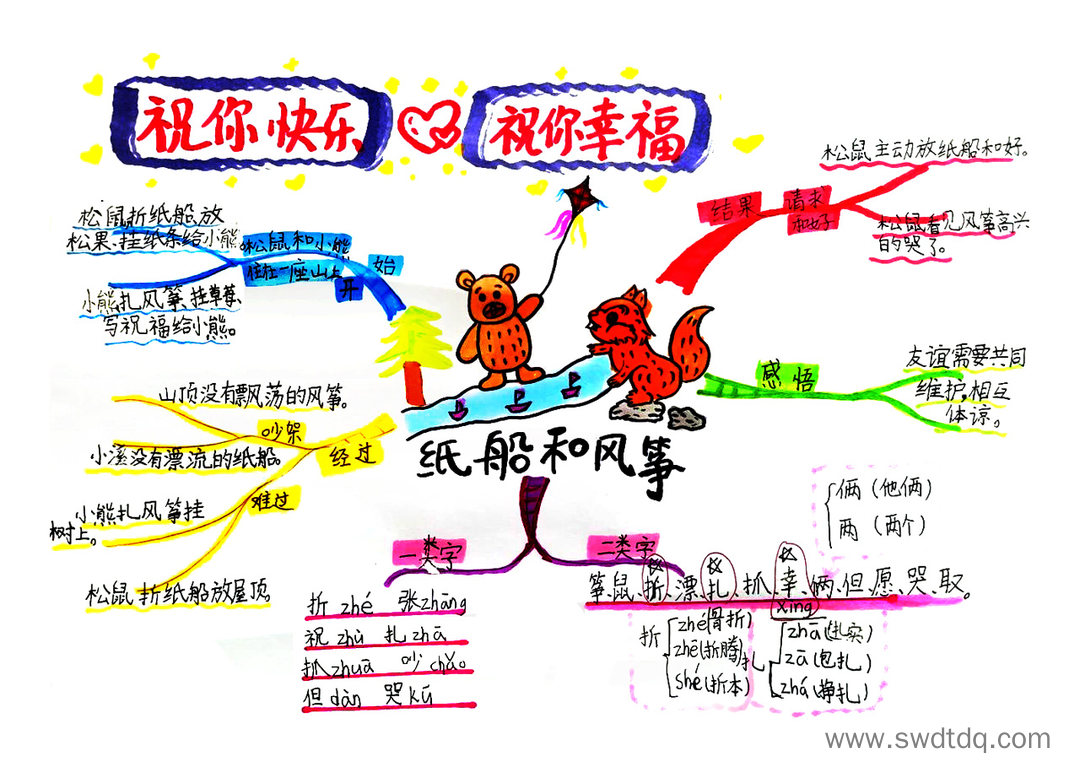 祝你快乐
祝你幸福
松鼠折纸船放
松果、挂纸条给小熊
松鼠和小熊
住在一座山上
开
始
小熊扎风筝、挂草莓、
写祝福给小熊。
结果
请求
和好
松鼠主动放纸船和好。
松鼠看见风筝高兴
的哭了。
感悟
友谊需要共同
维护,相互
体谅。
山顶没有飘荡的风筝。
吵架
小溪没有漂流的纸船。
经过
难过
小熊扎风筝挂
树上。
松鼠折纸船放屋顶
纸船和风筝
一类字
折 zhé 张zhāng
祝 zhù 扎 zhā
抓zhuā 吵 chǎo
但dàn 哭kū
二类字
筝、鼠、折、漂、扎、抓、幸、俩、但、愿、哭、取。
xìng
俩 (他俩)
两 (两个)
折
zhé(骨折)
zhē(折腾)
shé(折本)
扎
zhā(扎实)
zā(包扎)
zhá(挣扎)
www.swdtdq.com